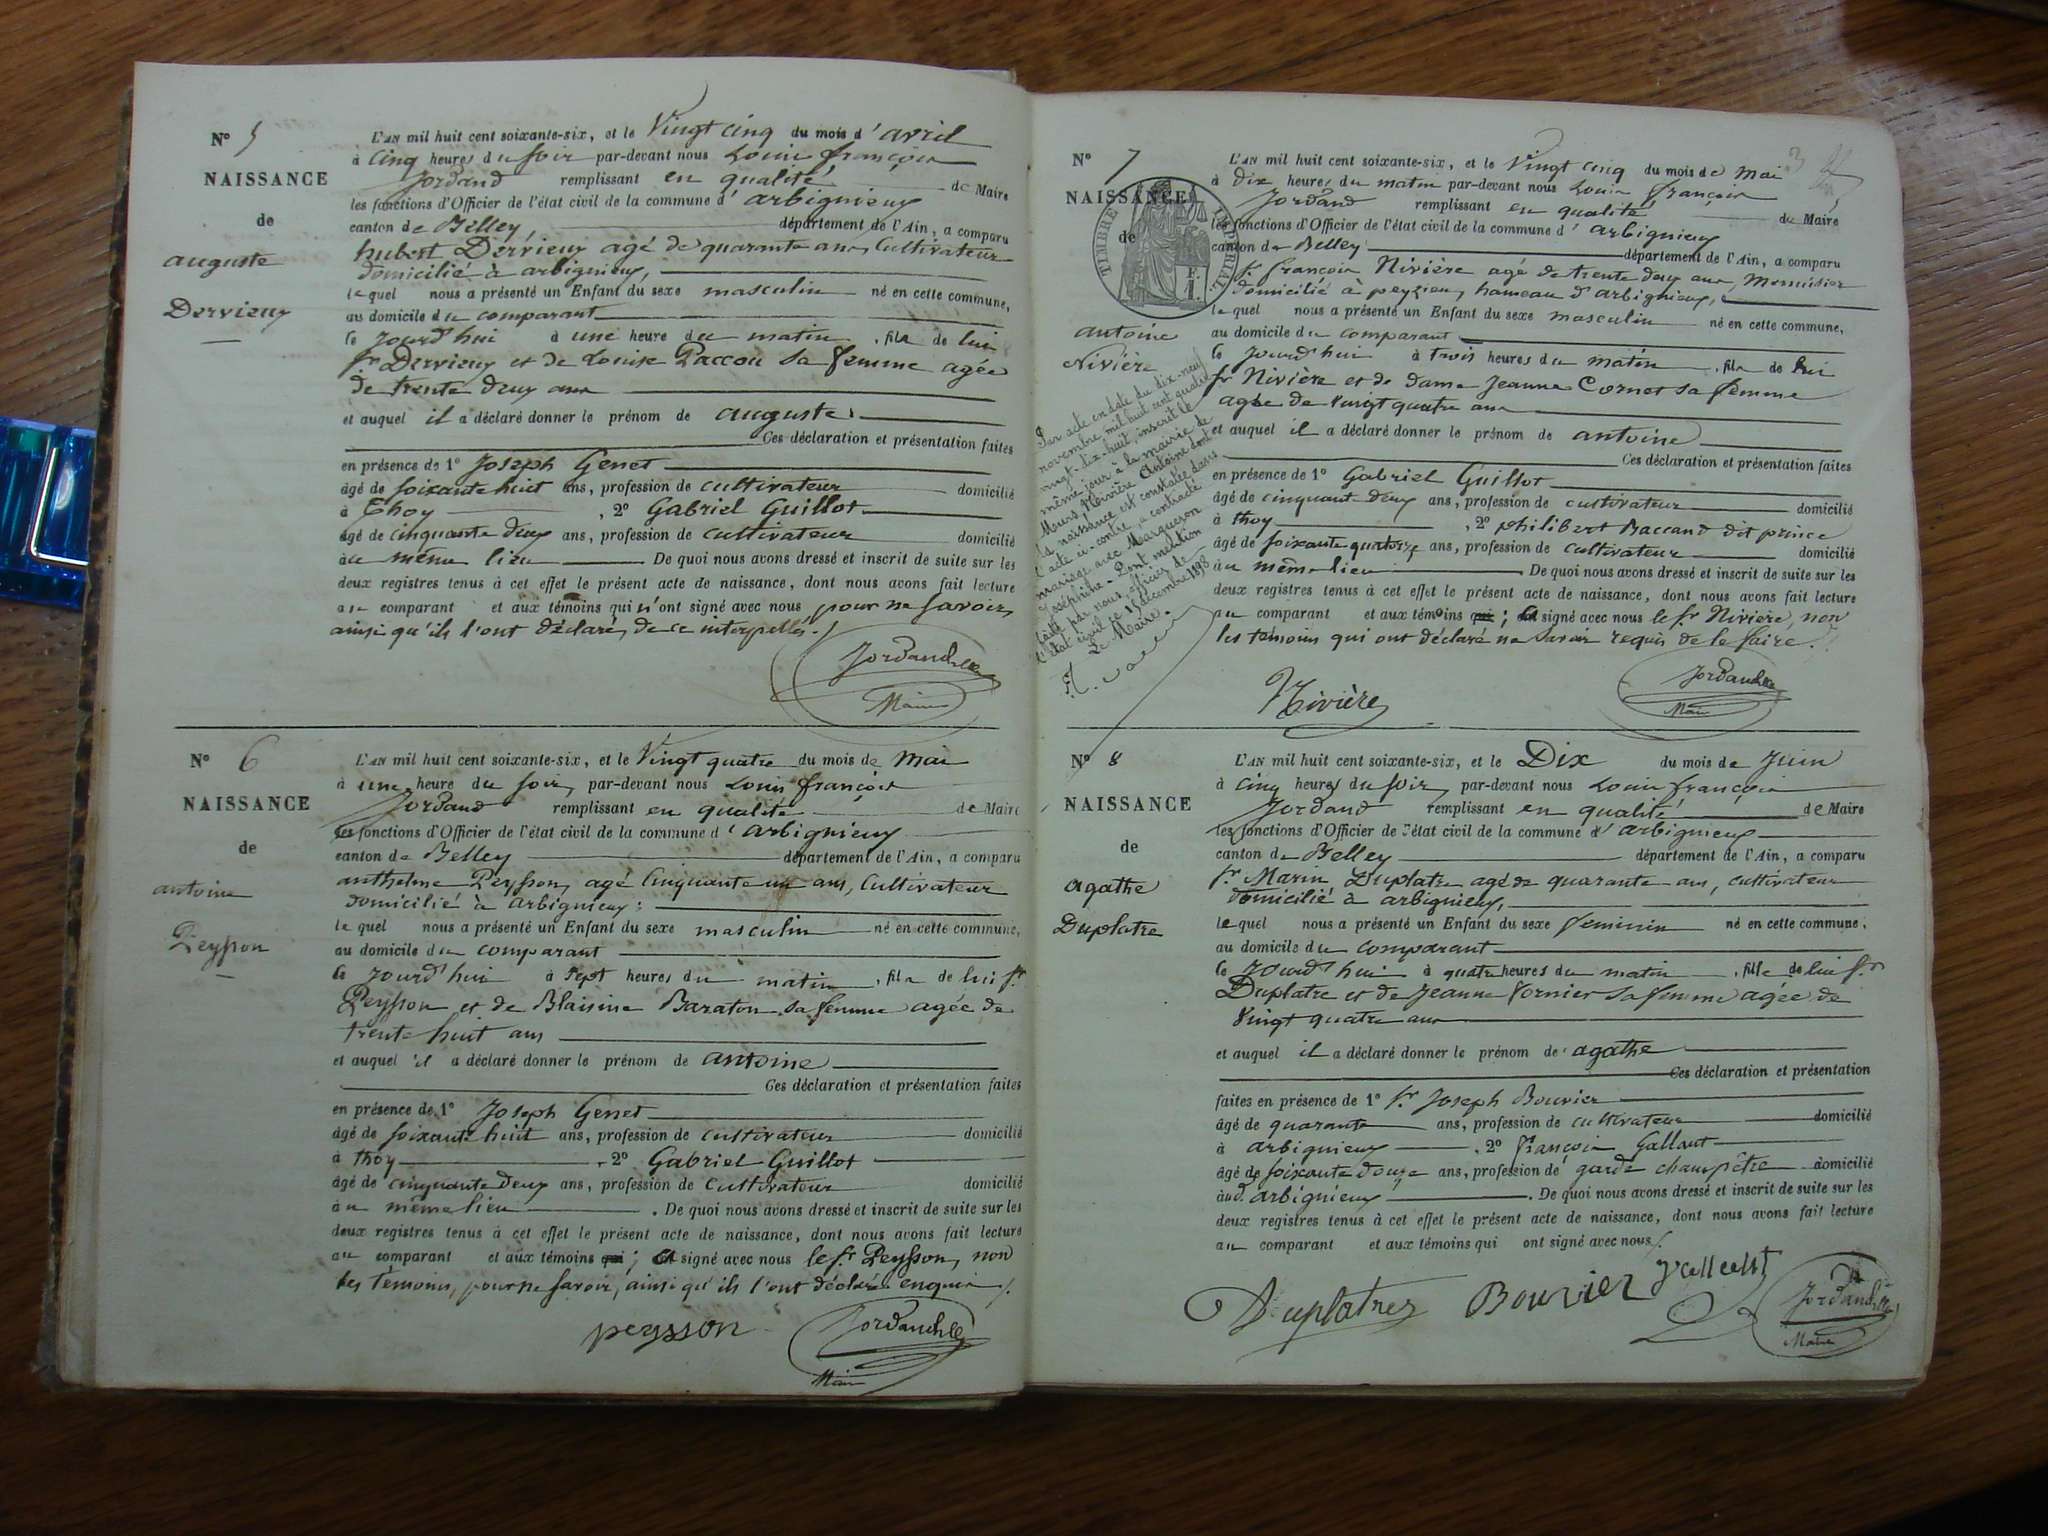 N° 5
NAISSANCE
de
auguste
Dervieux
L'AN mil huit cent soixante-six, et le Vingt cinq du mois d'avril
à cinq heures du soir par-devant nous Louis françois
Jordand remplissant en qualité de Maire
les fonctions d'Officier de l'état civil de la commune d'arbignieux
canton de Belley, département de l'Ain, a comparu
hubert Dervieux agé de quarante ans, Cultivateur
domicilié à arbignieux,
le quel nous a présenté un Enfant du sexe masculin né en cette commune,
au domicile du comparant
le jourd'hui à une heure du matin, fils de lui
sr Dervieux et de Louise Paccou sa femme agée
de trente deux ans
et auquel il a déclaré donner le prénom de auguste.
Ces déclaration et présentation faites
en présence de 1° Joseph Genet
âgé de soixante huit ans, profession de cultivateur domicilié
à Thoy, 2° Gabriel Guillot
âgé de cinquante deux ans, profession de cultivateur domicilié
au même lieu De quoi nous avons dressé et inscrit de suite sur les
deux registres tenus à cet effet le présent acte de naissance, dont nous avons fait lecture
au comparant et aux témoins qui n'ont signé avec nous pour ne savoir,
ainsi qu'ils l'ont déclaré, de ce interpellés./
Jordand
Maire
N° 6
NAISSANCE
de
antoine
Peysson
L'AN mil huit cent soixante-six, et le Vingt quatre du mois de mai
à une heure du soir, par-devant nous Louis françois
Jordand remplissant en qualité de Maire
les fonctions d'Officier de l'état civil de la commune d'arbignieux
canton de Belley département de l'Ain, a comparu
anthelme Peysson, agé Cinquante un ans, Cultivateur
domicilié à arbignieux;
le quel nous a présenté un Enfant du sexe masculin né en cette commune,
au domicile du comparant
le jourd'hui à sept heures du matin, fils de lui sr
Peysson et de Blaisine Baraton sa femme agée de
trente huit ans
et auquel il a déclaré donner le prénom de antoine
Ces déclaration et présentation faites
en présence de 1° Joseph Genet
âgé de soixante huit ans, profession de cultivateur domicilié
à thoy, 2° Gabriel Guillot
âgé de cinquante deux ans, profession de cultivateur domicilié
au même lieu. De quoi nous avons dressé et inscrit de suite sur les
deux registres tenus à cet effet le présent acte de naissance, dont nous avons fait lecture
au comparant et aux témoins qui; et signé avec nous le sr Peysson, non
les témoins, pour ne savoir, ainsi qu'ils l'ont déclaré enquis./.
peysson
Jordand
Maire
N° 7
NAISSANCE
de
TIMBRE IMPERIAL
antoine
Nivière
Par acte en date du dix-neuf
novembre, mil huit cent quatre
vingt-dix-huit, inscrit le
même jour à la mairie de
Murs, Nivière Antoine dont
la naissance est constatée dans
l'acte ci-contre, a contracté
mariage avec Marqueron
Joséphine. Dont mention
faite par nous, officier de
l'état civil ce 1 décembre 1898
Le Maire.
L'AN mil huit cent soixante-six, et le Vingt cinq du mois de mai
à dix heures du matin par-devant nous Louis françois
Jordand remplissant en qualité de Maire
les fonctions d'Officier de l'état civil de la commune d'arbignieux
canton de Belley département de l'Ain, a comparu
sr françois Nivière agé de trente deux ans, Menuisier
domicilié à peyzieu, hameau d'arbignieux,
le quel nous a présenté un Enfant du sexe masculin né en cette commune,
au domicile du comparant
le jourd'hui à trois heures du matin, fils de lui
sr Nivière et de dame Jeanne Cornet sa femme
agée de vingt quatre ans
et auquel il a déclaré donner le prénom de antoine
Ces déclaration et présentation faites
en présence de 1° Gabriel Guillot
âgé de cinquant deux ans, profession de cultivateur domicilié
à thoy, 2° philibert Baccand dit prince
âgé de soixante quatorze ans, profession de cultivateur domicilié
au même lieu De quoi nous avons dressé et inscrit de suite sur les
deux registres tenus à cet effet le présent acte de naissance, dont nous avons fait lecture
au comparant et aux témoins qui; et signé avec nous le sr Nivière, non
les témoins qui ont déclaré ne savoir requis de le faire.
Nivière
Jordand
Maire
N° 8
NAISSANCE
de
agathe
Duplatre
L'AN mil huit cent soixante-six, et le Dix du mois de Juin
à cinq heures du soir, par-devant nous Louis françois
Jordand remplissant en qualité de Maire
les fonctions d'Officier de l'état civil de la commune d'arbignieux
canton de Belley département de l'Ain, a comparu
sr Marin Duplatre agé de quarante ans, cultivateur
domicilié à arbignieux,
le quel nous a présenté un Enfant du sexe féminin né en cette commune,
au domicile du comparant
le jourd'hui à quatre heures du matin, fille de lui sr
Duplatre et de Jeanne Fornier sa femme agée de
vingt quatre ans
et auquel il a déclaré donner le prénom de agathe
Ces déclaration et présentation
faites en présence de 1° sr Joseph Bouvier
âgé de quarante ans, profession de cultivateur domicilié
à arbignieux, 2° françois Gallant
âgé de soixante douze ans, profession de garde champêtre domicilié
aud. arbignieux. De quoi nous avons dressé et inscrit de suite sur les
deux registres tenus à cet effet le présent acte de naissance, dont nous avons fait lecture
au comparant et aux témoins qui ont signé avec nous./.
Duplatre
Bouvier
Jordand
Maire